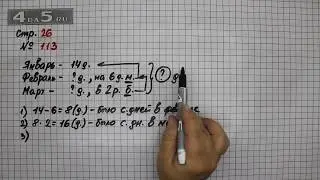 4DA5.RU
Стр. 26
№ 113
Январь - 14 д.
Февраль - ? д., на 6 д. м.
Март - ? д., в 2 р. б.
? д
1) 14-6=8(д.) - было с. дней в фев
2) 8·2=16(д.) - было с. дн. в м
3)